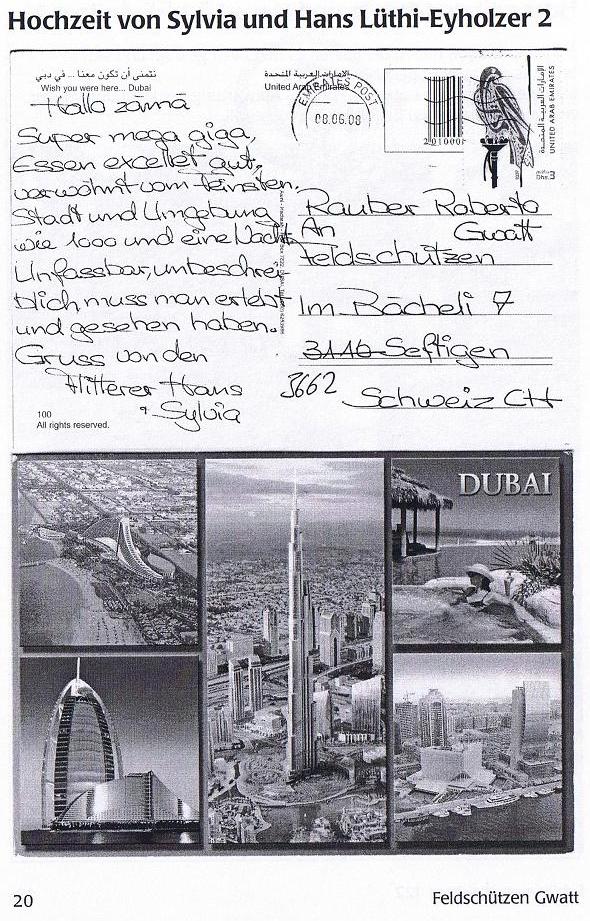 Hochzeit von Sylvia und Hans Lüthi-Eyholzer 2
نتمنى أن تكون معنا ... في دبي
Wish you were here... Dubai
الإمارات العربية المتحدة
United Arab Emirates
EMIRATES POST
08.06.08
201000
الإمارات العربية المتحدة
UNITED ARAB EMIRATES
Hallo zämä
Super mega giga,
Essen excellet gut,
verwöhnt vom feinsten.
Stadt und Umgebung
wie 1000 und eine Nacht
Unfassbar, unbeschrei
blich, muss man erlebt
und gesehen haben.
Gruss von den
Flitterer Hans
+ Sylvia
Rauber Roberto
An Gwatt
Feldschützen
Im Bächeli 7
3116 Seftigen
3662
Schweiz CH
100
All rights reserved.
DUBAI
20
Feldschützen Gwatt